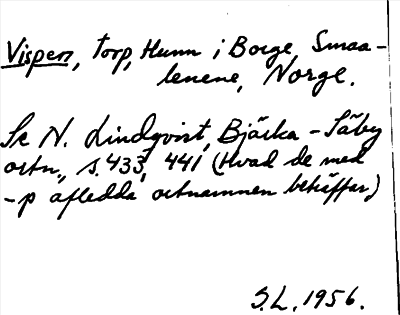 Vispen, torp, Hunn i Borge, Smaa-
lenene, Norge.
Se N. Lindqvist, Bjärka-Säby
ortn., s. 433, 441 (Hvad de med
-p afledda ortnamnen beträffar)
S.L. 1956.